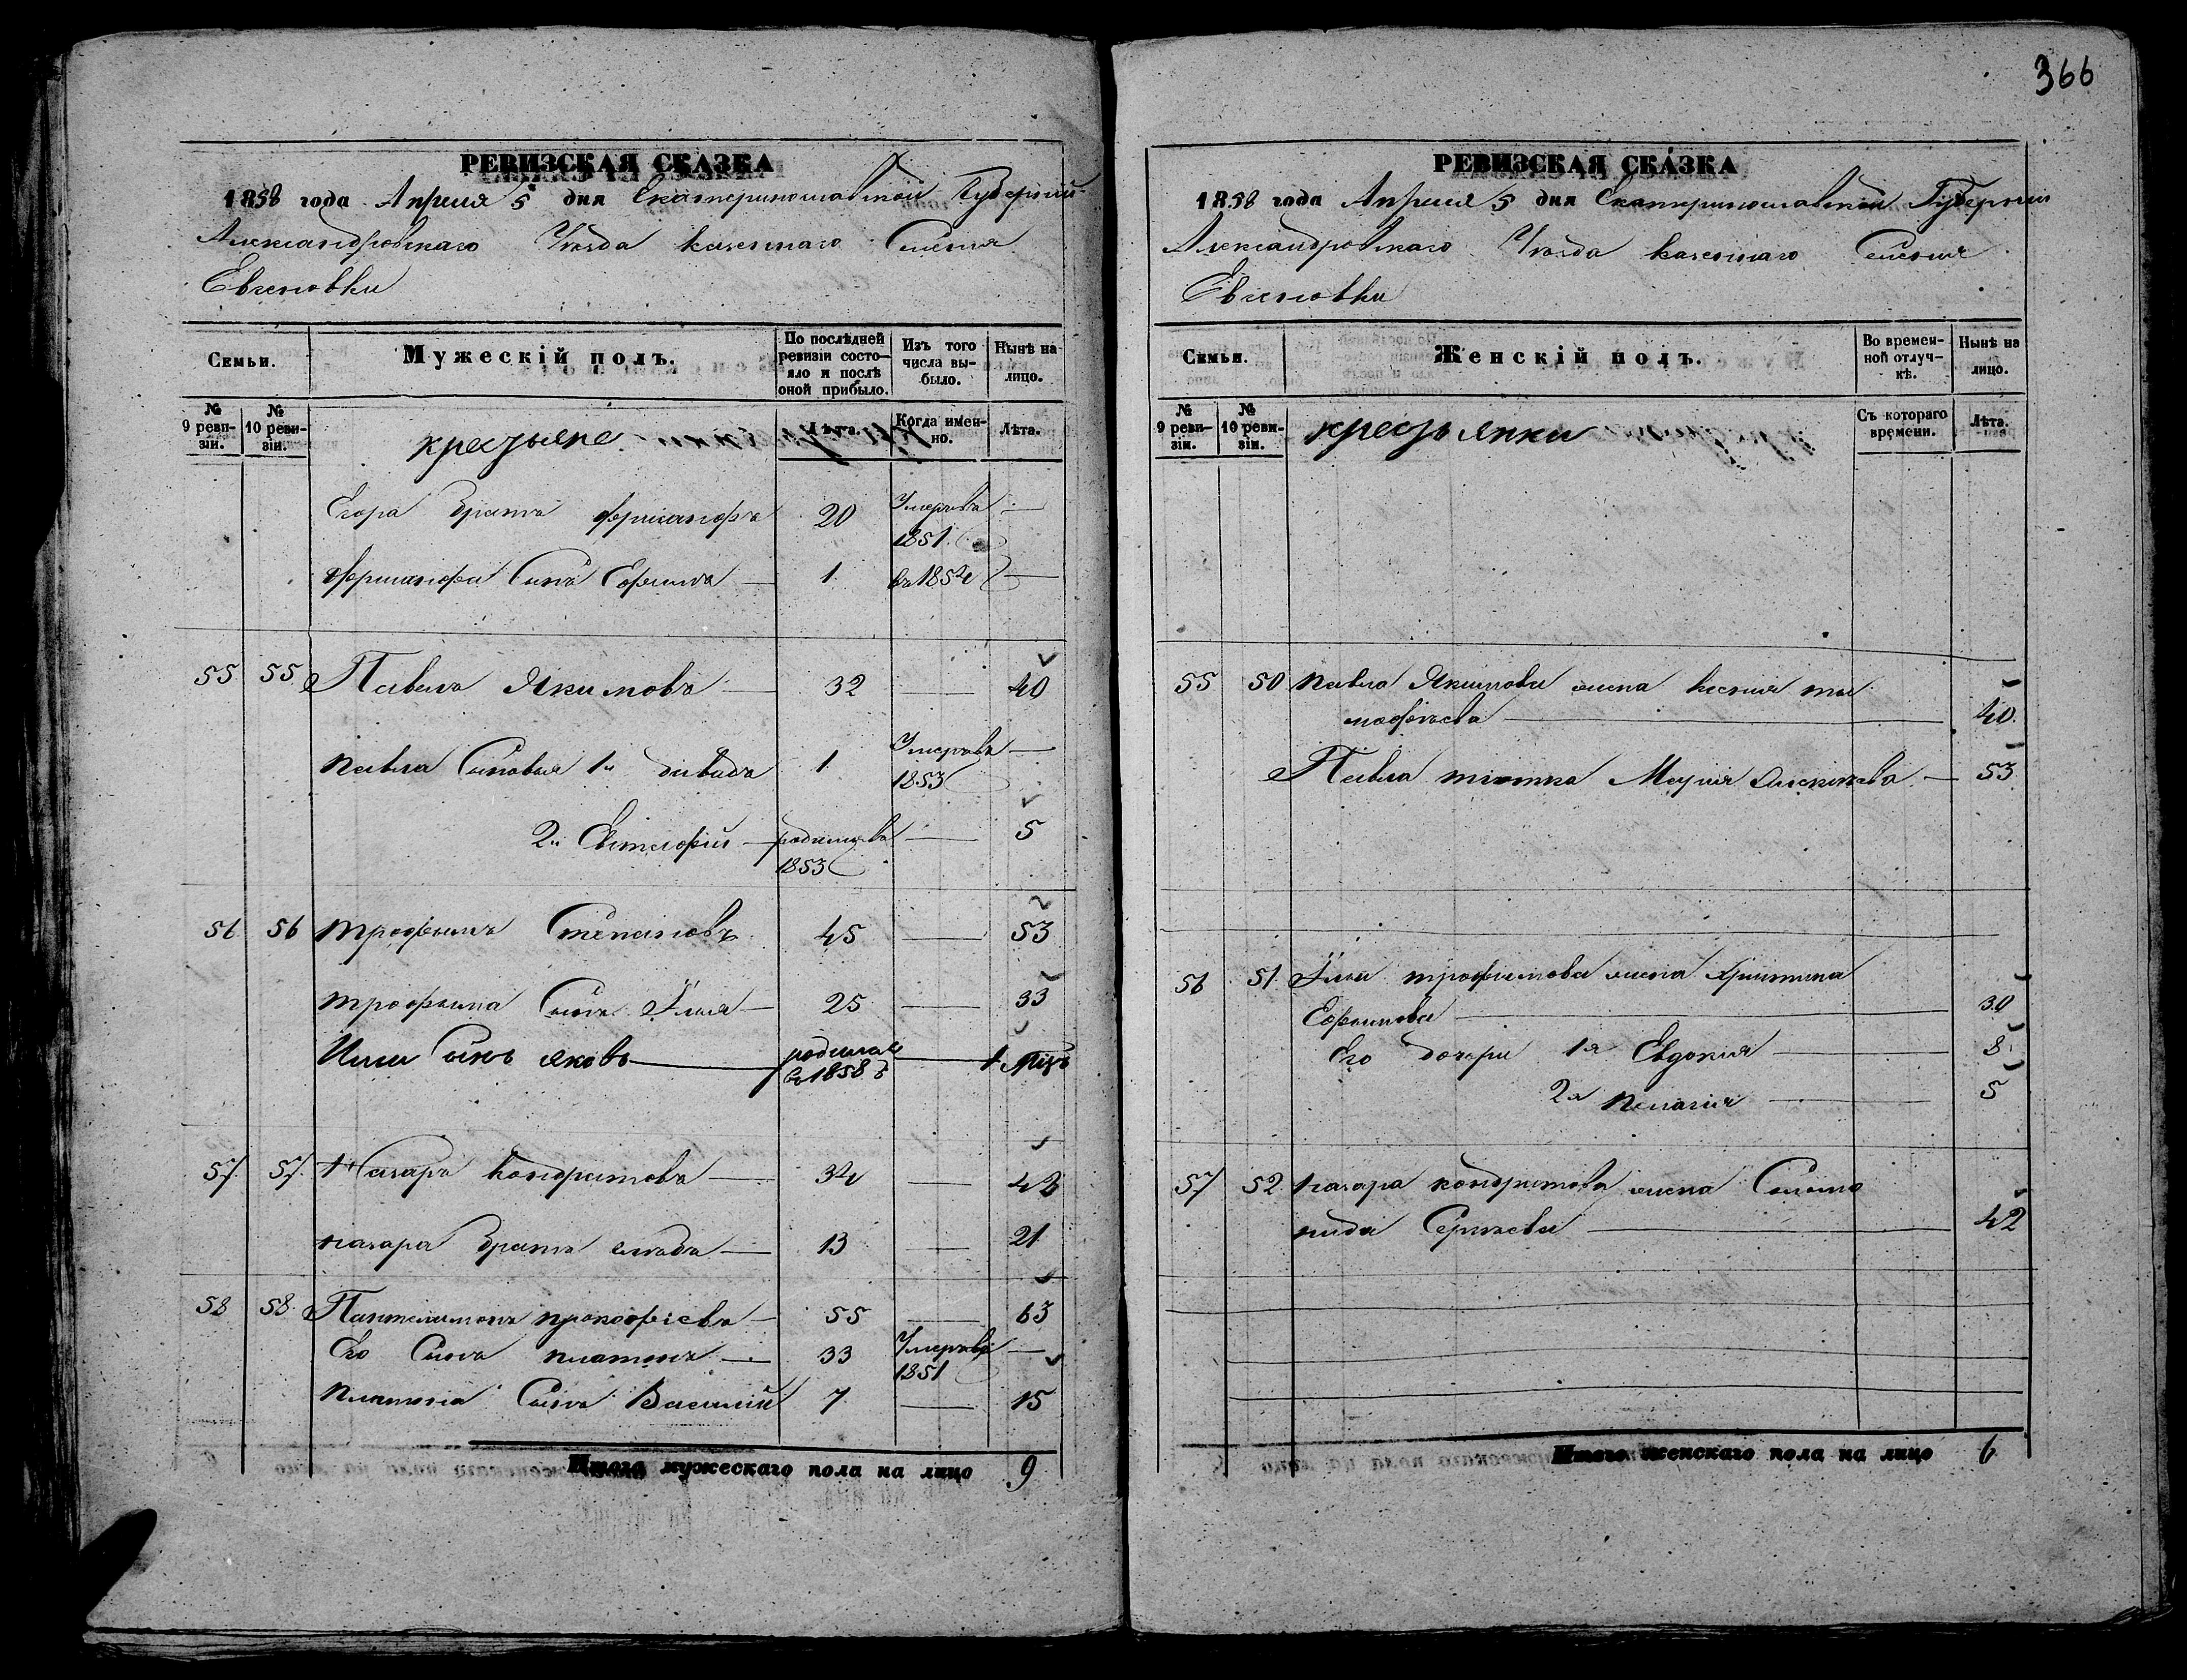 РЕВИЗСКАЯ СКАЗКА
1858 года Апреля 5 дня Екатеринославской Губерніи
Александровскаго Уѣзда казеннаго Селенія
Евгеновки
Семьи.
Мужескій полъ.
По послѣдней ревизіи состояло и послѣ оной прибыло.
Изъ того числа выбыло.
Нынѣ на лицо.
№ 9 ревизіи.
№ 10 ревизіи.
крестьяне
Лѣта.
Когда именно.
Лѣта.
Егора братъ 20 Умеръ въ 1851 —
Сынъ Ефимъ — 1 въ 1854 —
55 55 Павелъ Якимовъ — 32 — 40
Павла Сыновья 1й давидъ 1 Умеръ въ 1853 —
2й — родился въ 1853 — 5
56 56 трофимъ Степановъ 45 — 53
трофима Сынъ Илья — 25 — 33
Ильи Сынъ яковъ — родился въ 1858 — 1 мѣц
57 57 Назаръ Кондратовъ — 34 — 42
назара братъ — 13 — 21
58 58 Пантелимонъ прокофіевъ — 55 — 63
Его Сынъ платонъ — 33 Умеръ въ 1851 —
платона Сынъ Василій 7 — 15
Итого мужескаго пола на лицо 9
366
РЕВИЗСКАЯ СКАЗКА
1858 года Апреля 5 дня Екатеринославской Губерніи
Александровскаго Уѣзда казеннаго Селенія
Евгеновки
Семьи.
Женскій полъ.
Во временной отлучкѣ.
Нынѣ на лицо.
№ 9 ревизіи.
№ 10 ревизіи.
крестьянки
Съ котораго времени.
Лѣта.
55 50 Павла Якимова жена Ксенія ти
мофѣева — 40
Павла тіотка Марія Алексѣева — 53
56 51 Ильи трофимова жена Христина
Ефимова — 30
Его дочери 1я Евдокия — 8
2я пелагия — 5
57 52 назара кондратова жена Соломо
нида Сергѣева — 42
Итого женскаго пола на лицо 6